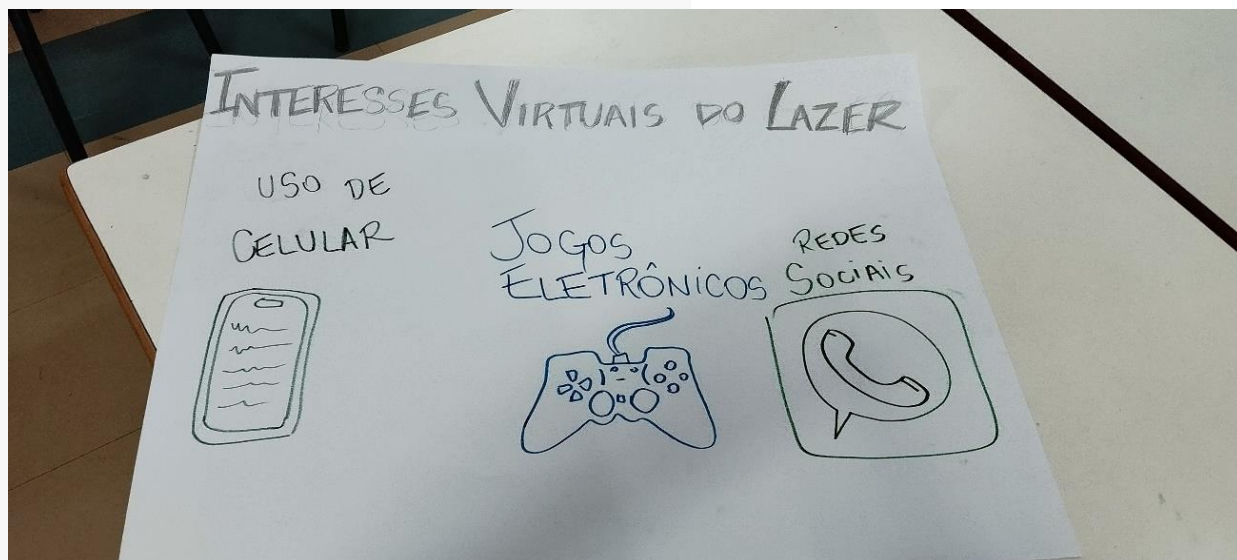 INTERESSES VIRTUAIS DO LAZER
USO DE
CELULAR
JOGOS
ELETRÔNICOS
REDES
SOCIAIS